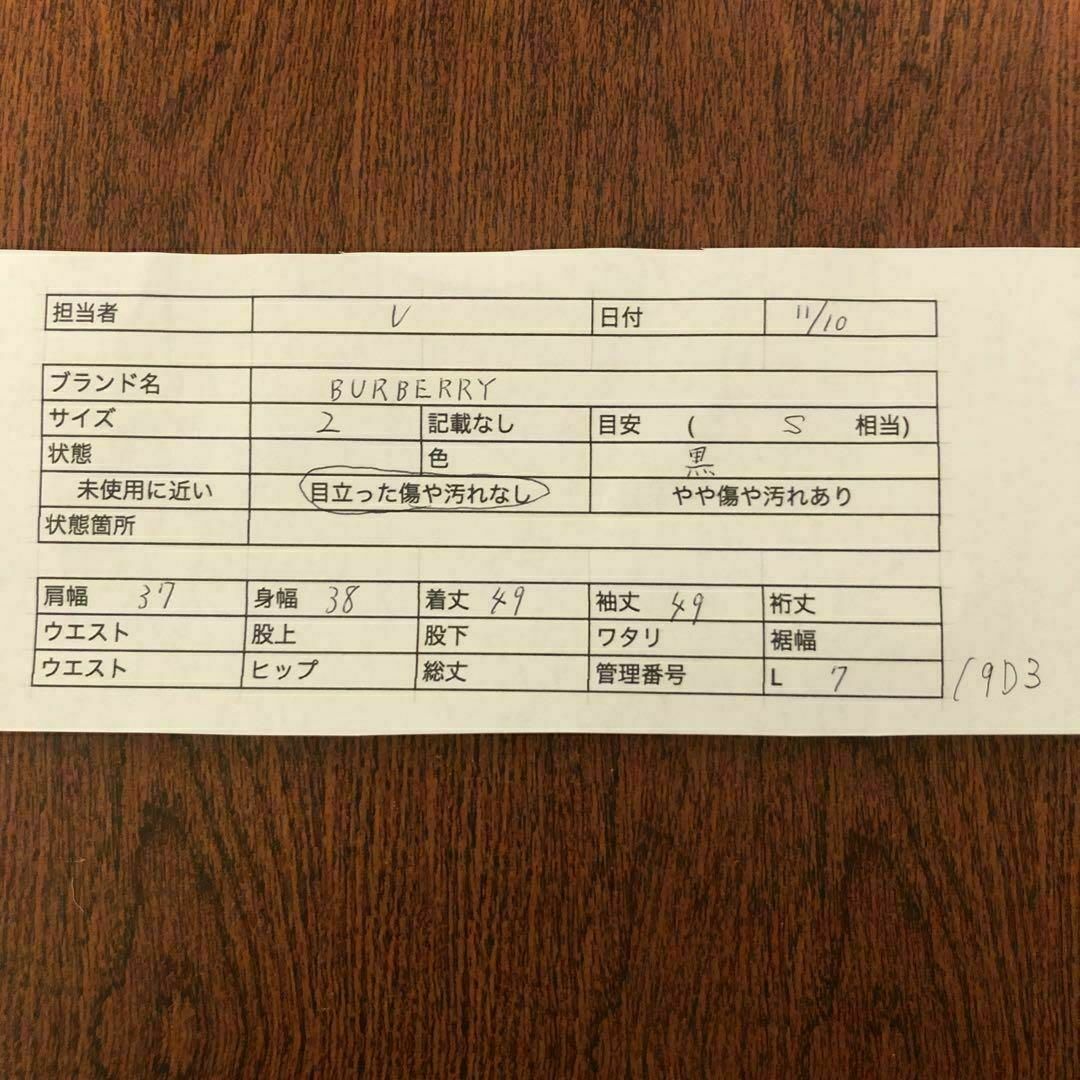 担当者 V 日付 11/10
ブランド名 BURBERRY
サイズ 2 記載なし 目安 ( S 相当)
状態 色 黒
未使用に近い 目立った傷や汚れなし やや傷や汚れあり
状態箇所
肩幅 37 身幅 38 着丈 49 袖丈 49 裄丈
ウエスト 股上 股下 ワタリ 裾幅
ウエスト ヒップ 総丈 管理番号 L 7 /9D3